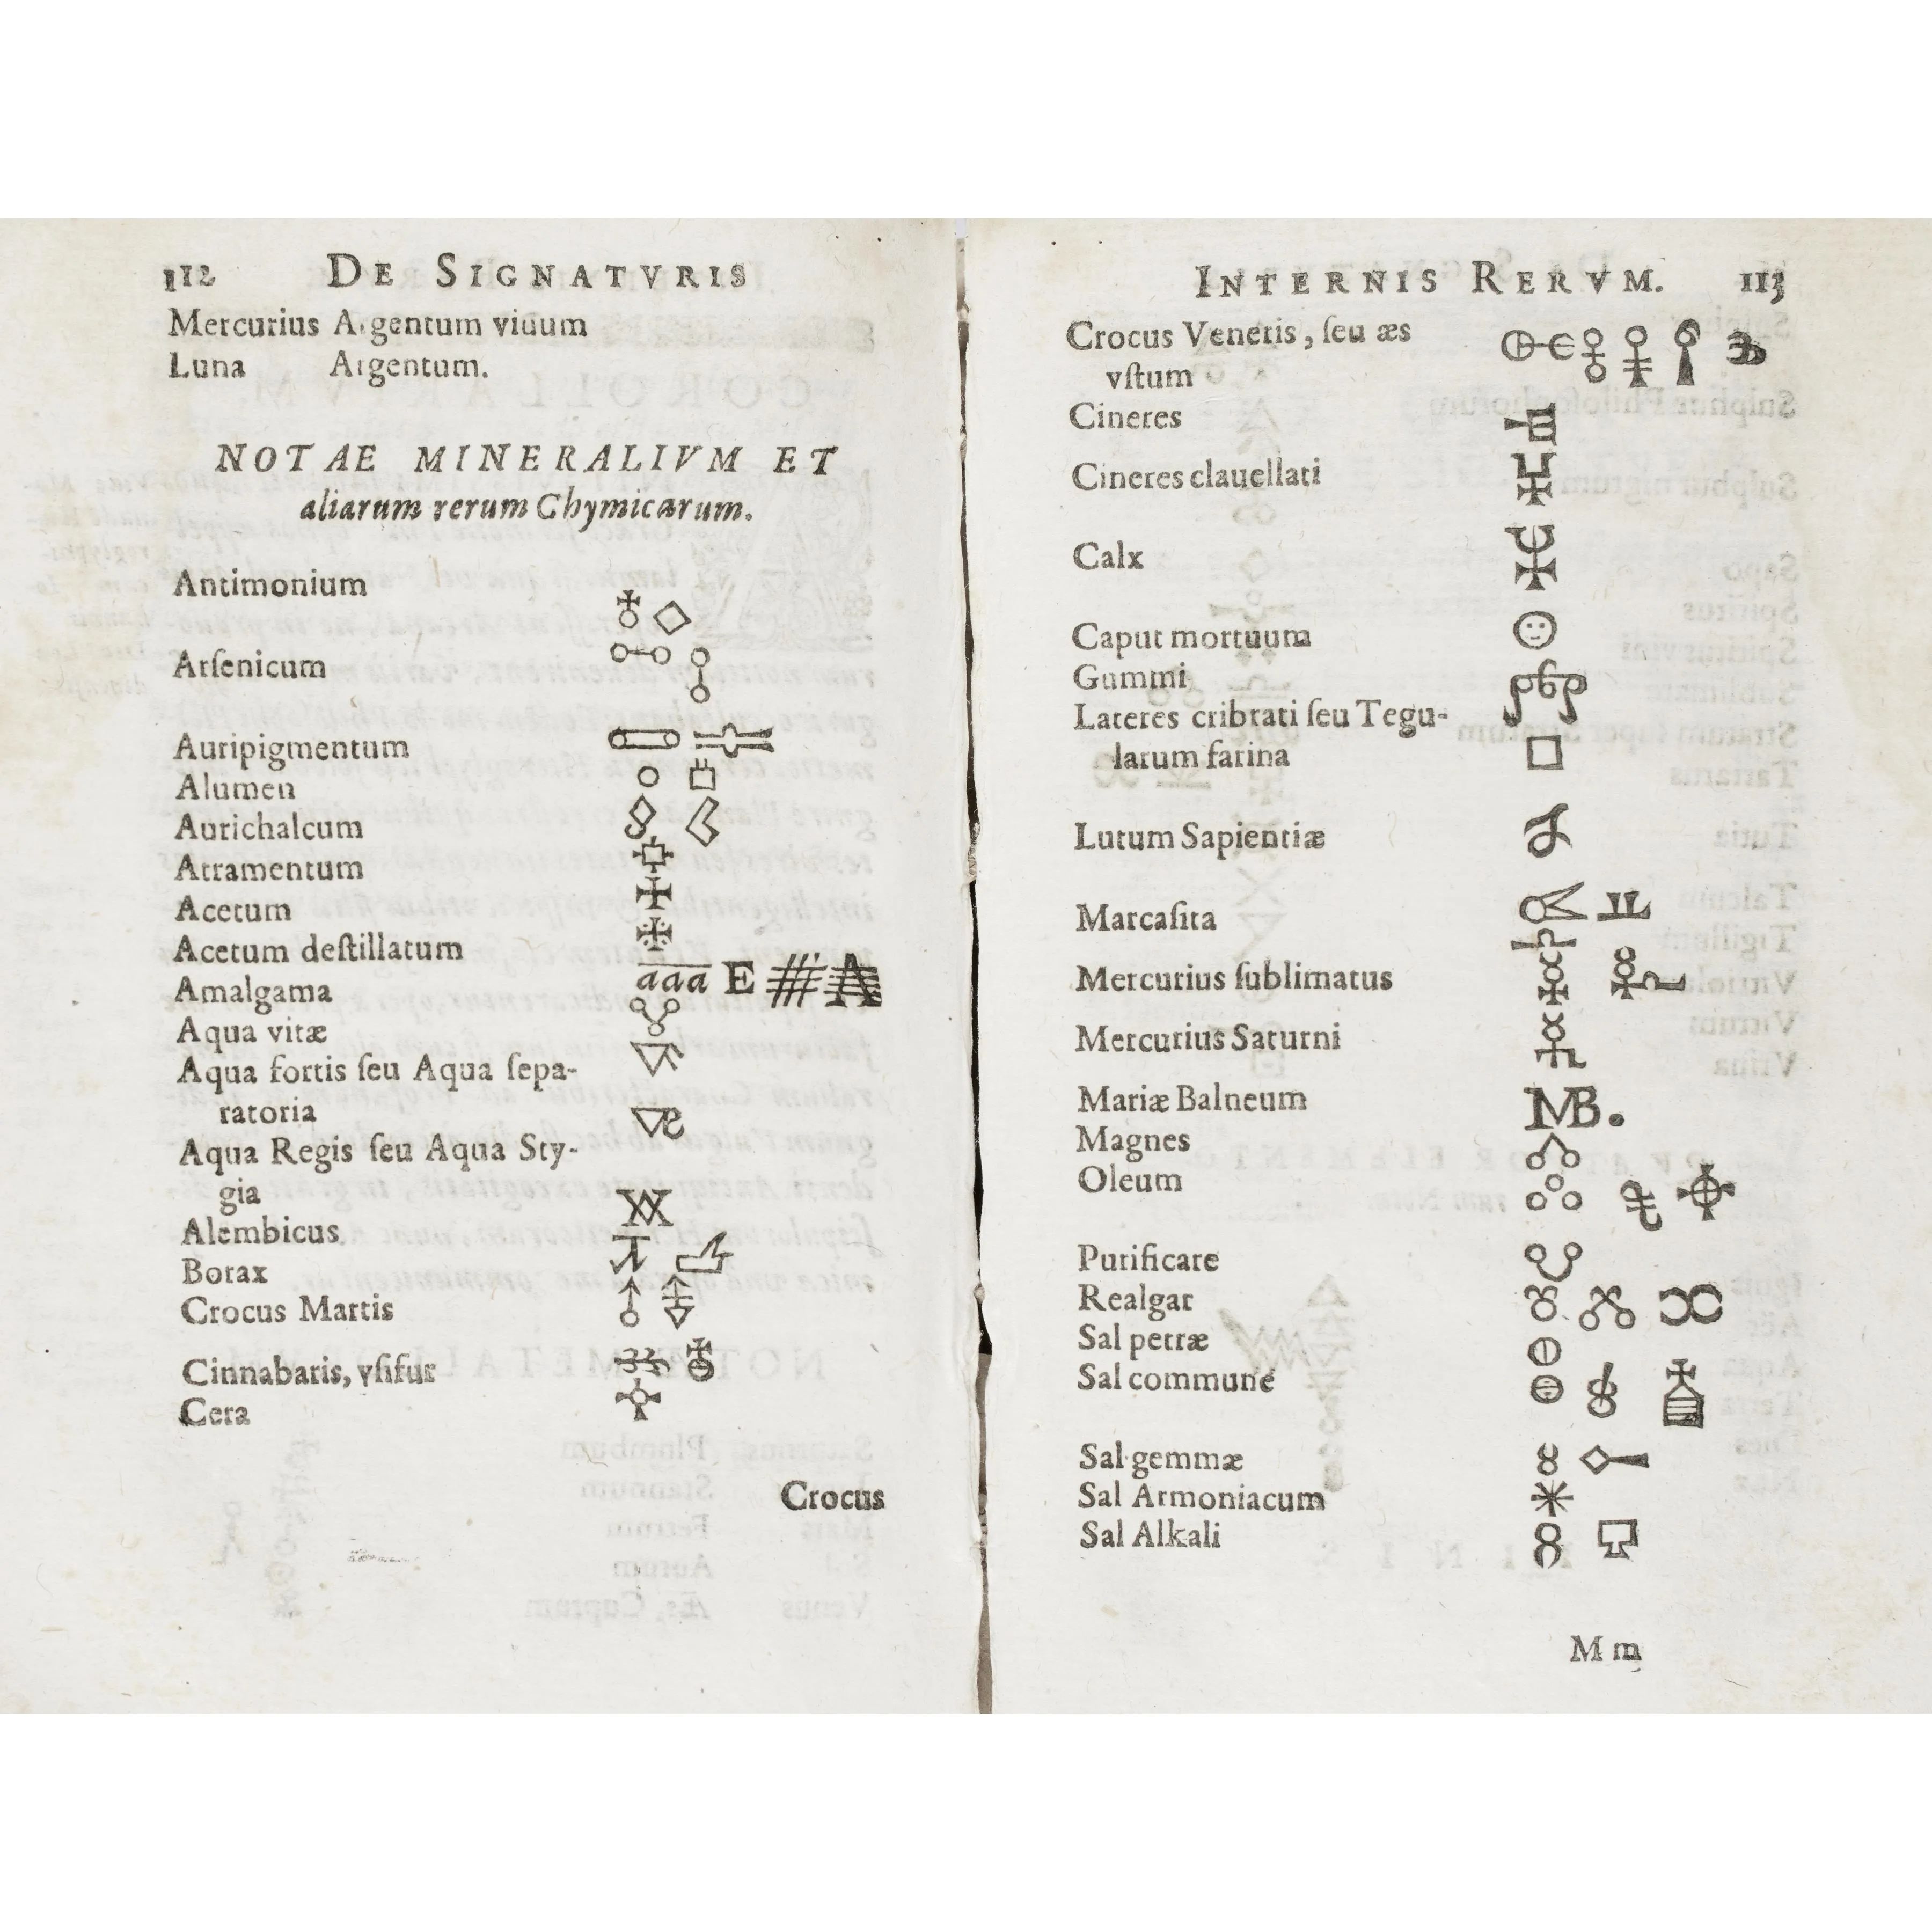 112 DE SIGNATVRIS
Mercurius Argentum viuum
Luna Argentum.
NOTAE MINERALIVM ET
aliarum rerum Chymicarum.
Antimonium
Arſenicum
Auripigmentum
Alumen
Aurichalcum
Atramentum
Acetum
Acetum deſtillatum
Amalgama aaa E
Aqua vitæ
Aqua fortis ſeu Aqua ſepa-
ratoria
Aqua Regis ſeu Aqua Sty-
gia
Alembicus
Borax
Crocus Martis
Cinnabaris, vſifur
Cera
Crocus
INTERNIS RERVM. 113
Crocus Veneris, ſeu æs
vſtum
Cineres
Cineres clauellati
Calx
Caput mortuum
Gummi
Lateres cribrati ſeu Tegu-
larum farina
Lutum Sapientiæ
Marcaſita
Mercurius ſublimatus
Mercurius Saturni
Mariæ Balneum MB.
Magnes
Oleum
Purificare
Realgar
Sal petræ
Sal commune
Sal gemmæ
Sal Armoniacum
Sal Alkali
M m